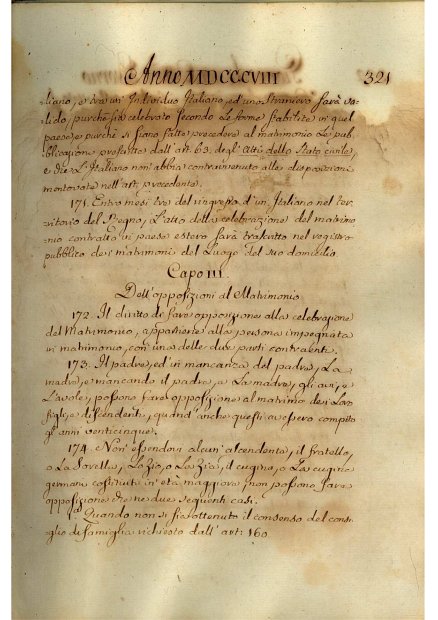 Anno MDCCCVIII 321
liano, e tra un' Individuo Italiano, ed uno Straniero sarà va-
lido, purchè sia celebrato secondo Le forme stabilite in quel
paese, e purchè si siano fatte precedere al matrimonio Le pub-
blicazioni prescritte dall'art. 63. degl'Atti dello Stato civile,
e che L'Italiano non abbia contravvenuto alle disposizioni
mentovate nell'art. precedente.
171. Entro mesi tre dal ingresso d'un Italiano nel ter-
ritorio del Regno, L'atto della celebrazione del matrimo-
nio contratto in paese estero sarà trascritto nel registro
pubblico de' matrimoni del Luogo del suo domicilio.
Capo III.
Dell'opposizioni al Matrimonio
172. Il diritto di fare opposizione alla celebrazione
del Matrimonio, appartiene alla persona impegnata
in matrimonio, con una delle due parti contraenti.
173. Il padre, ed in mancanza del padre, La
madre, e mancando il padre, e La madre, gli avi, e
L'avole, possono fare opposizione al matrimo de i Loro
figli, e discendenti, quand'anche questi avessero compito
gl'anni venticinque.
174. Non essendovi alcun' ascendente, il fratello,
o La Sorella, Lo Zio, o La Zia, il cugino, o La cugina
germani costituiti in età maggiore non possono fare
opposizione che ne due seguenti casi.
Quando non si sia ottenuto il consenso del consi-
glio di famiglia richiesto dall'art: 160